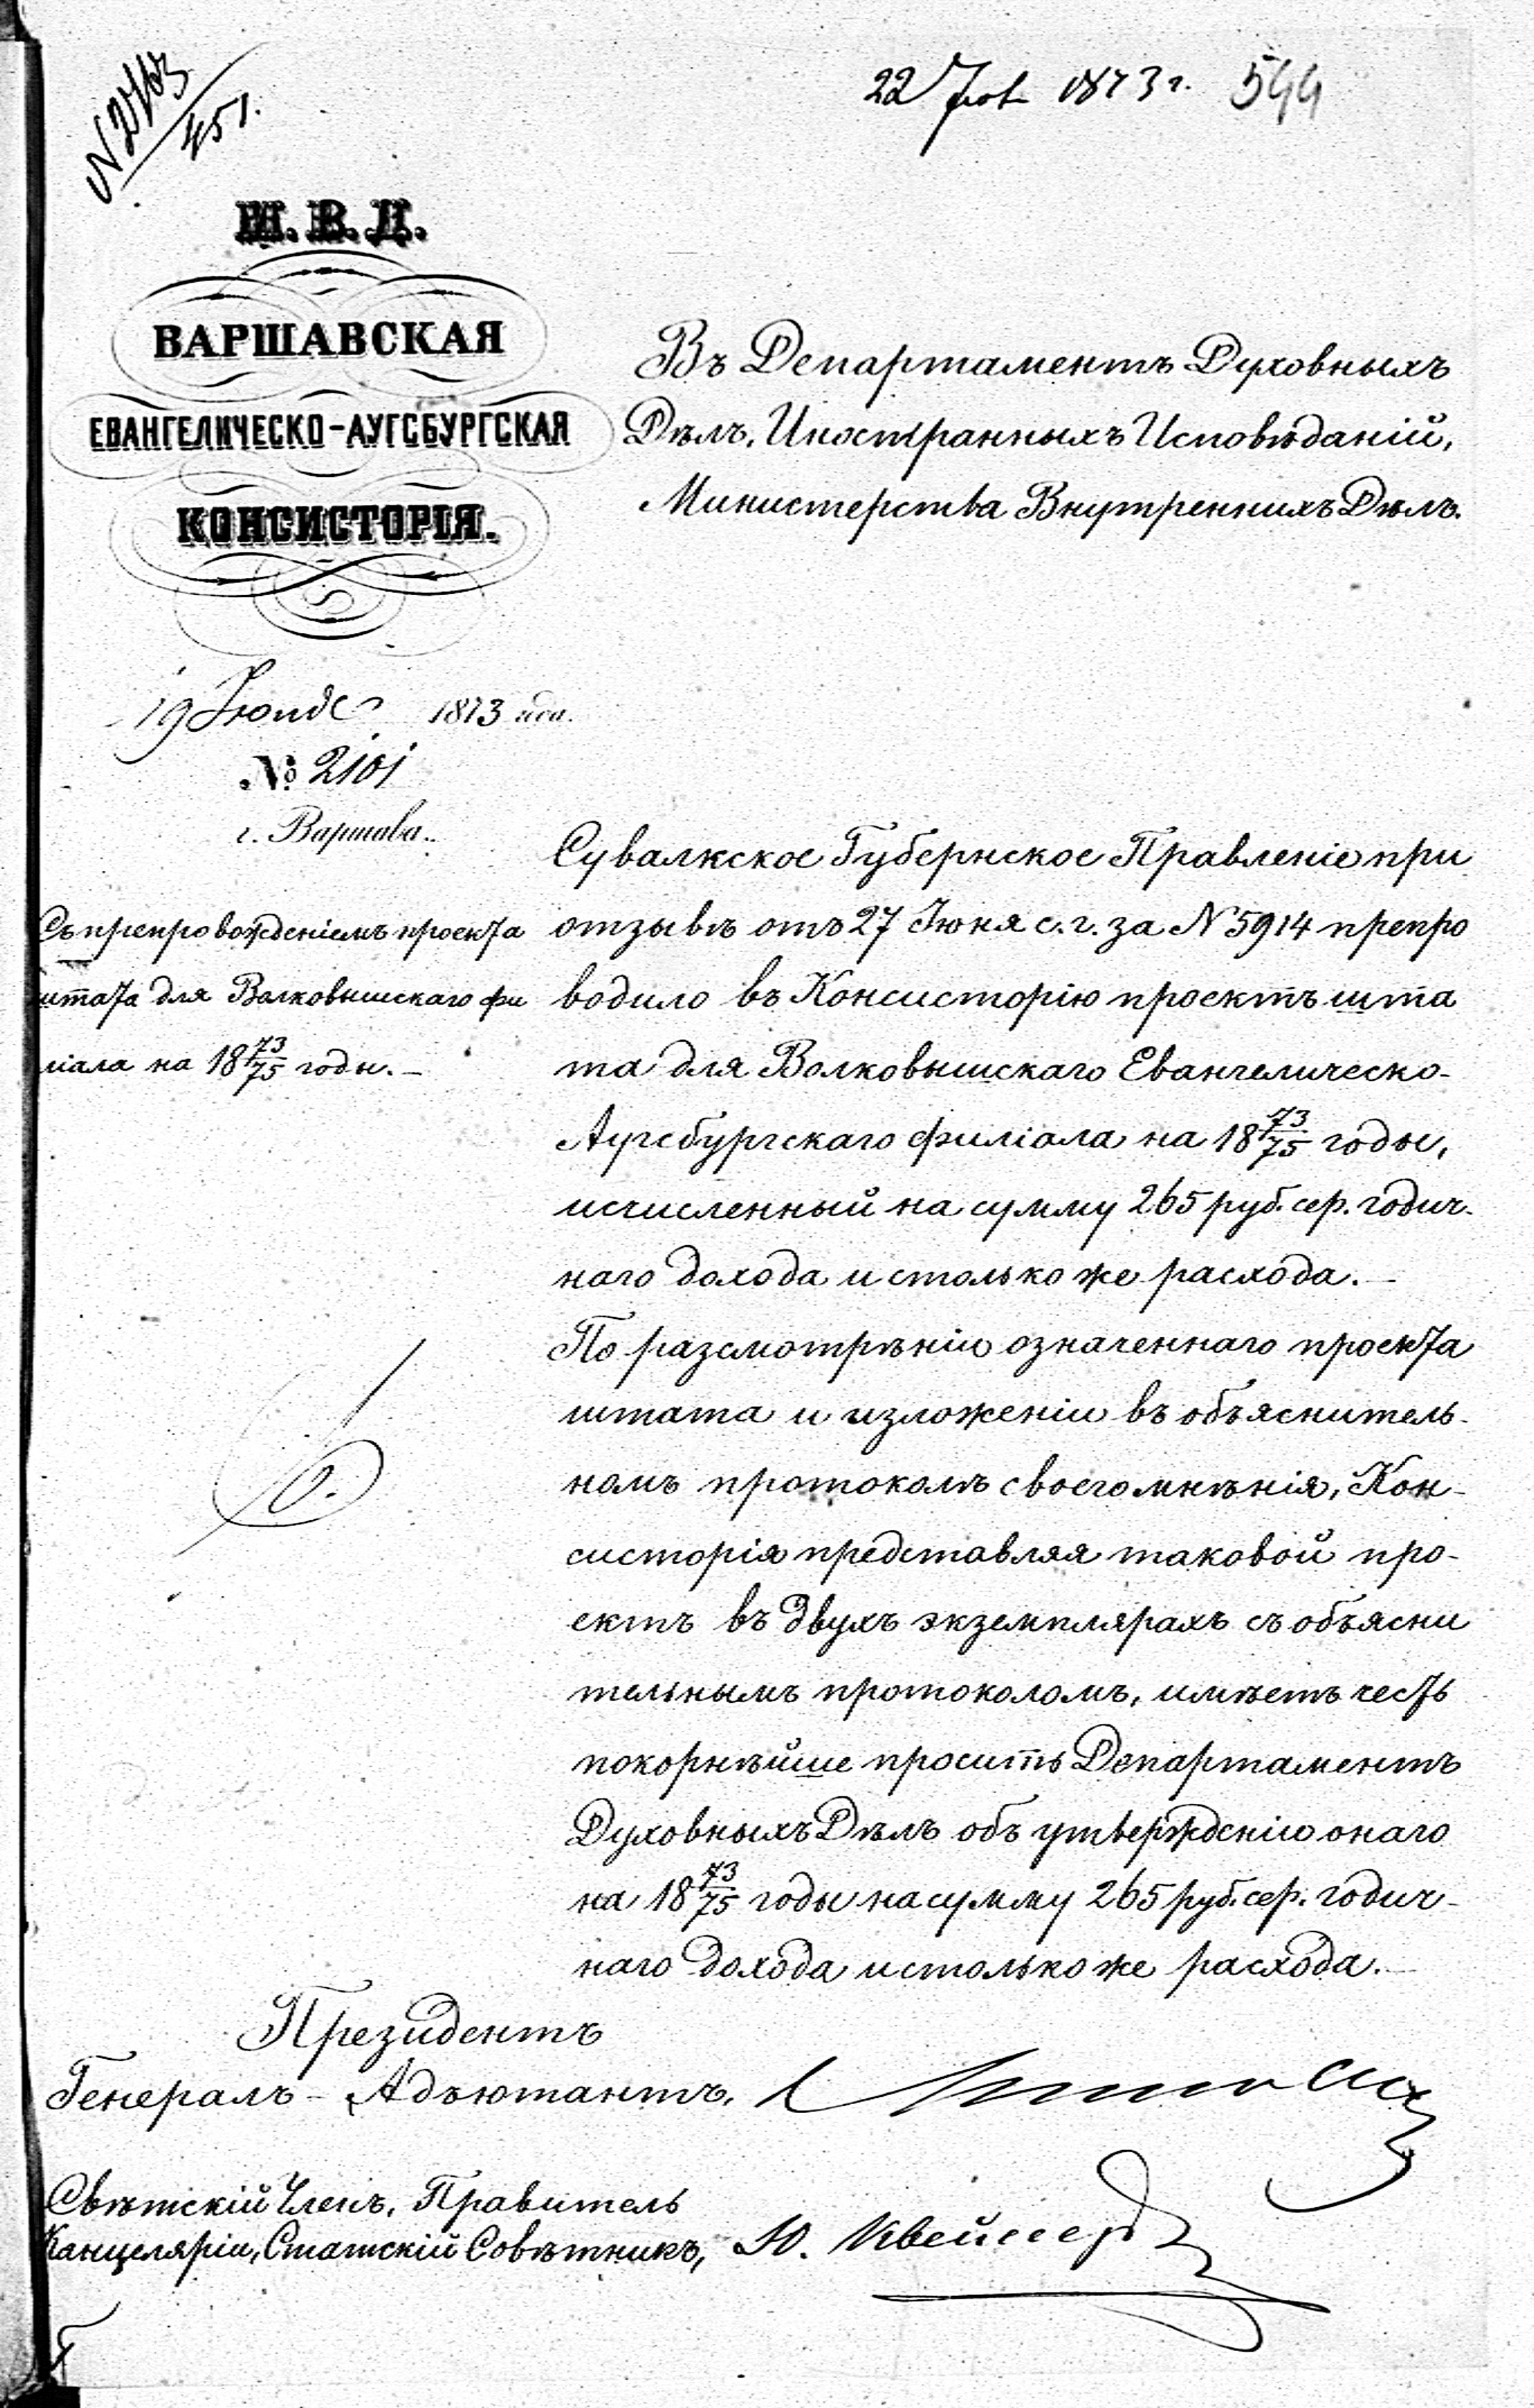 № 2763
451.
22 1873 г. 544
М. В. Д.
ВАРШАВСКАЯ
ЕВАНГЕЛИЧЕСКО-АУГСБУРГСКАЯ
КОНСИСТОРІЯ.
19 1873 года.
№ 2101
г. Варшава.
Съ препровожденіемъ проекта
штата для Волковышскаго фи
ліала на 18 73/75 годы.—
Въ Департаментъ Духовныхъ
Дѣлъ, Иностранныхъ Исповѣданій,
Министерства Внутреннихъ Дѣлъ.
Сувалкское Губернское Правленіе при
отзывѣ отъ 27 Іюня с. г. за № 5914 препро
водило въ Консисторію проектъ шта
та для Волковышскаго Евангелическо-
Аугсбургскаго филіала на 18 73/75 годы,
исчисленный на сумму 265 руб. сер. годич-
наго дохода и столько же расхода.—
По разсмотрѣніи означеннаго проекта
штата и изложеніи въ объяснитель-
номъ протоколѣ своего мнѣнія, Кон-
систорія представляя таковой про-
ектъ въ двухъ экземплярахъ съ объясни
тельнымъ протоколомъ, имѣетъ честь
покорнѣйше просить Департаментъ
Духовныхъ Дѣлъ объ утвержденіи онаго
на 18 73/75 годы на сумму 265 руб. сер. годич-
наго дохода и столько же расхода.—
Президентъ
Генералъ-Адъютантъ,
Свѣтскій Членъ, Правитель
Канцеляріи, Статскій Совѣтникъ, Ю.